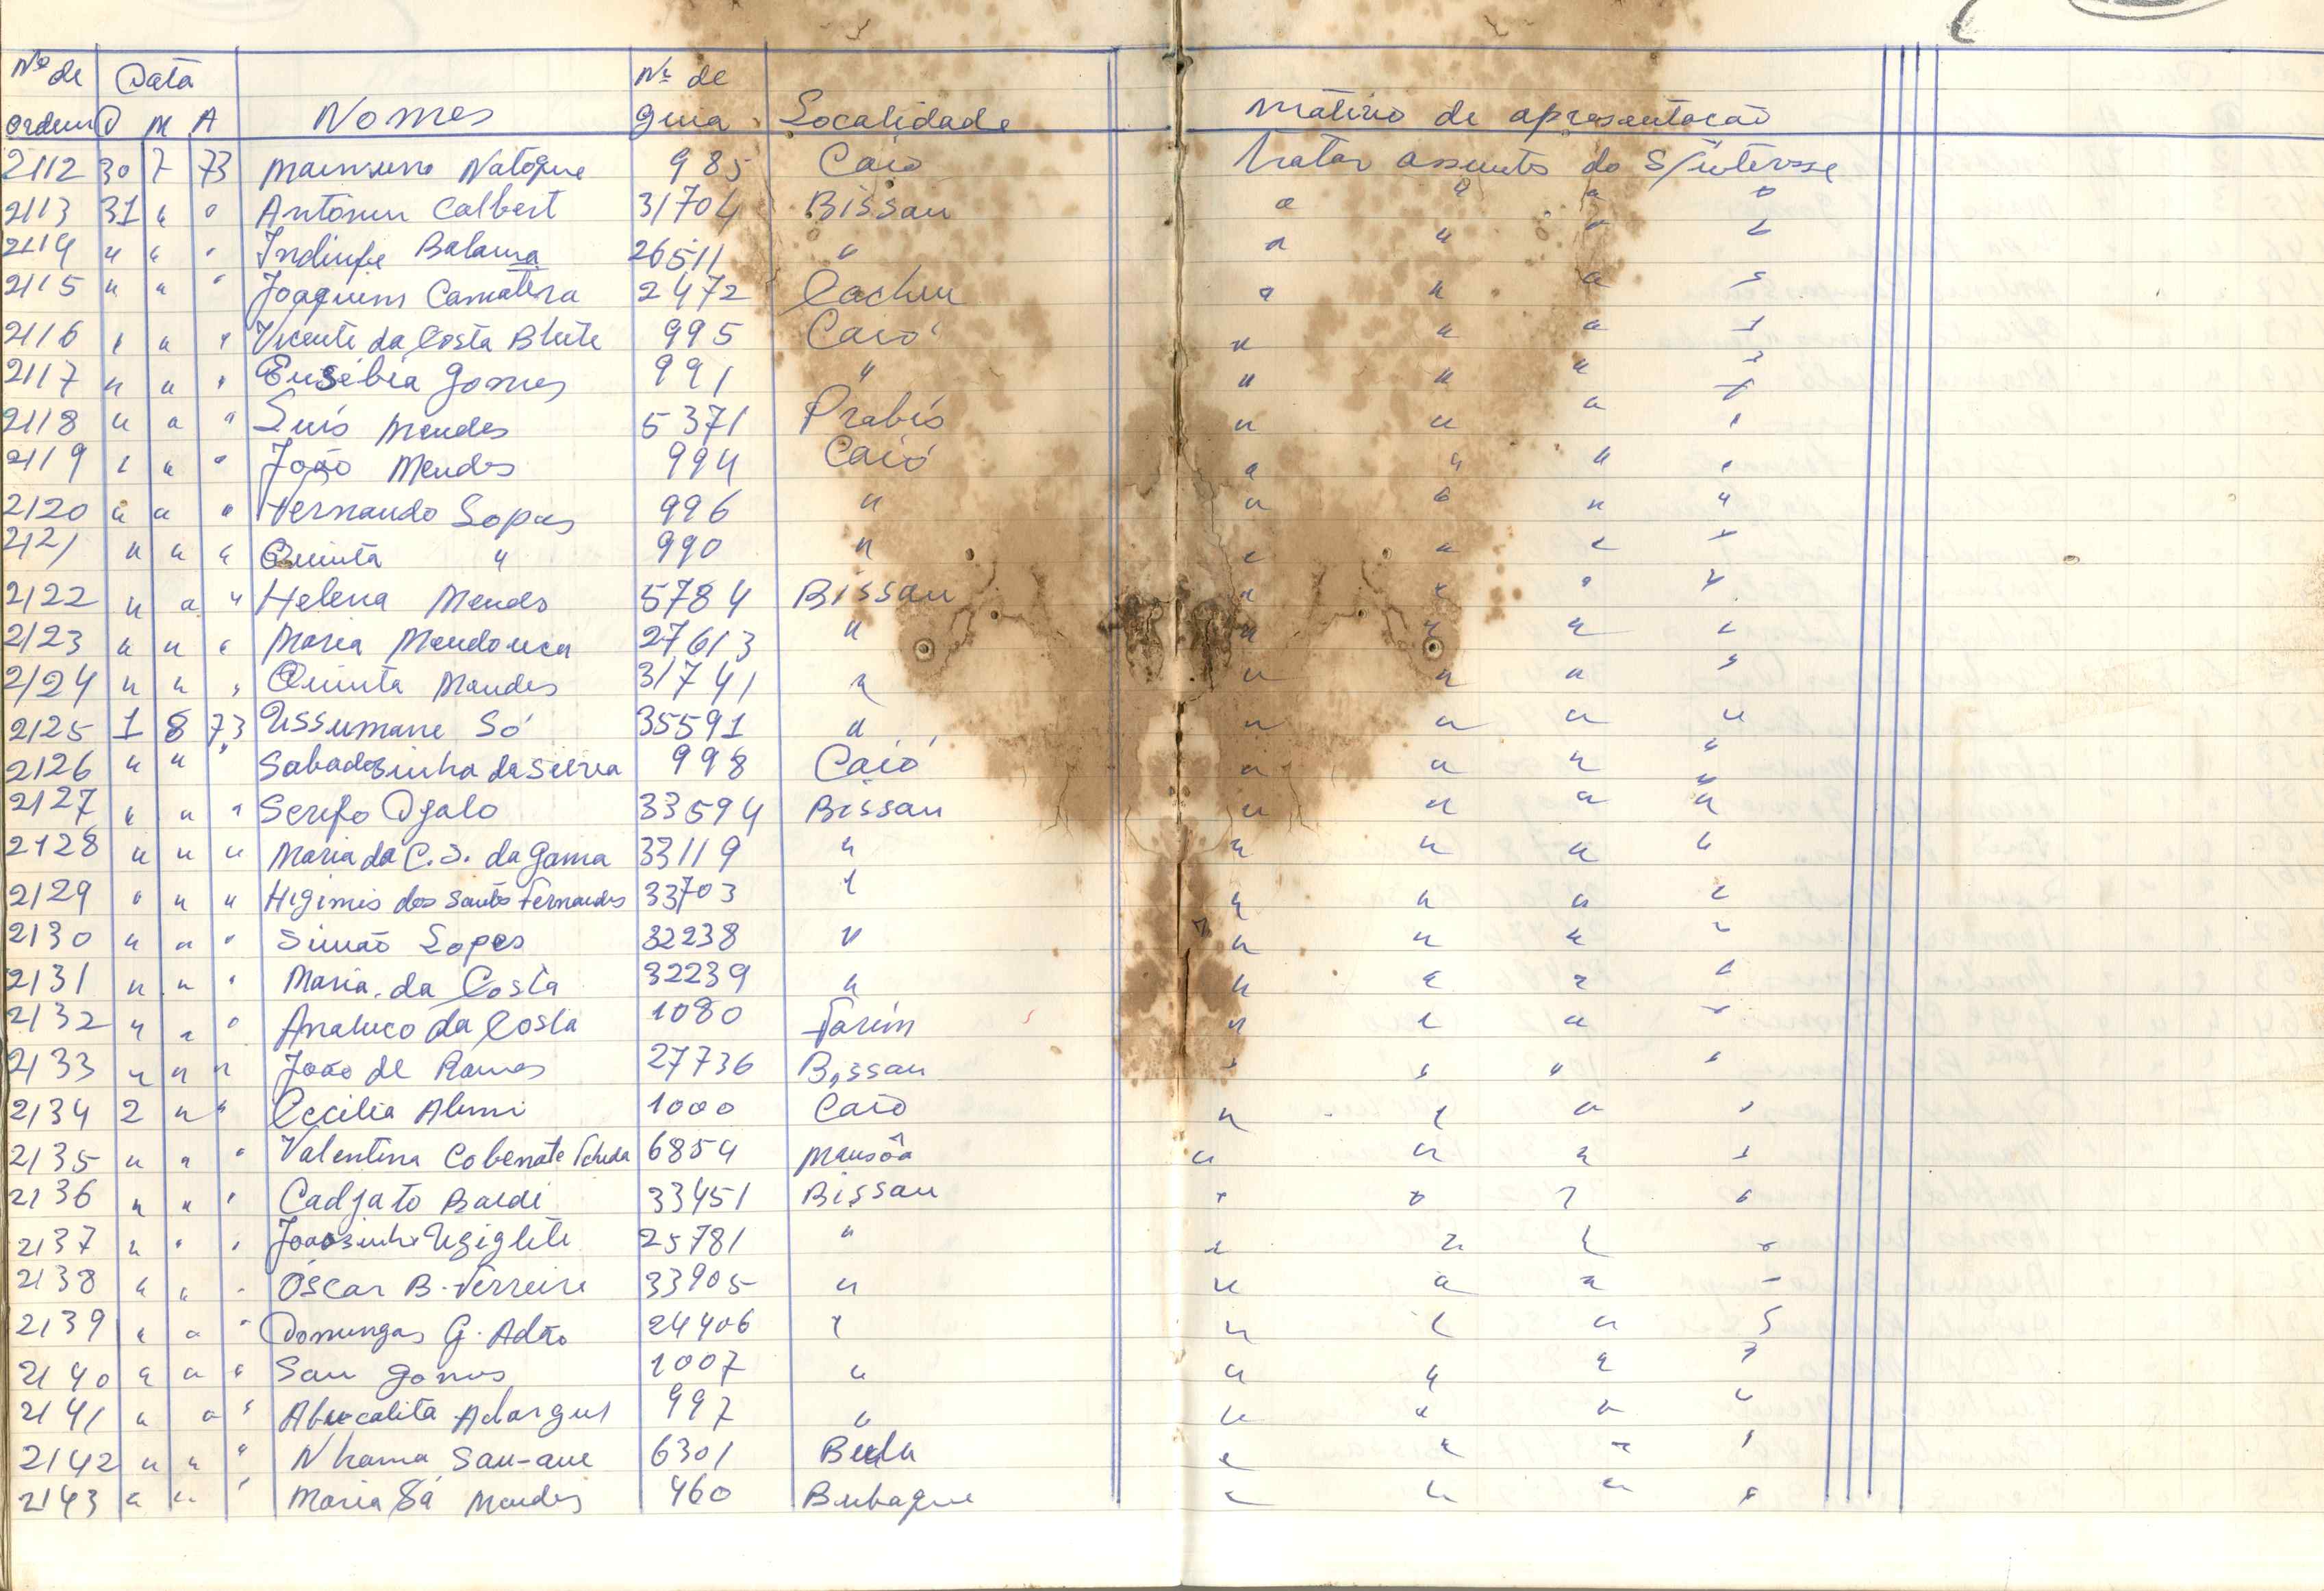 Nº de Data Nº de
ordem D M A Nomes guia Localidade Motivo de apresentação
2112 30 7 73 Natoque 985 Caió tratar assuntos do s/interesse
2113 31 " " Calbert 31704 Bissau " " " "
2114 " " " 26511 " " " " "
2115 " " " Joaquim 2472 Cacheu " " " "
2116 " " " Vicente da Costa 995 Caió " " " "
2117 " " " Eusébia Gomes 991 " " " " "
2118 " " " Luís Mendes 5371 Prabis " " " "
2119 " " " João Mendes 994 Caió " " " "
2120 " " " Fernando Lopes 996 " " " " "
2121 " " " Quinta " 990 " " " " "
2122 " " " Helena Mendes 5784 Bissau " " " "
2123 " " " Maria Mendonca 27613 " " " " "
2124 " " " Quinta Mendes 31741 " " " " "
2125 1 8 73 Ussumane Só 35591 " " " " "
2126 " " " Sabadosinha da Silva 998 Caió " " " "
2127 " " " Serifo Djalo 33594 Bissau " " " "
2128 " " " Maria da C. S. da Gama 33119 " " " " "
2129 " " " dos Santos Fernandes 33703 " " " " "
2130 " " " Simão Lopes 32238 " " " " "
2131 " " " Maria da Costa 32239 " " " " "
2132 " " " da Costa 1080 Farim " " " "
2133 " " " João de Ramos 27736 Bissau " " " "
2134 2 " " Cecilia 1000 Caió " " " "
2135 " " " Valentina 6854 Mansôa " " " "
2136 " " " Cadjato Baldi 33451 Bissau " " " "
2137 " " " Joãosinho 25781 " " " " "
2138 " " " Óscar B. Ferreira 33905 " " " " "
2139 " " " Domingas G. Adão 24406 " " " " "
2140 " " " San Gomes 1007 " " " " "
2141 " " " 997 " " " " "
2142 " " " Nhama 6301 Bula " " " "
2143 " " " Maria Sá Mendes 460 Bubaque " " " "